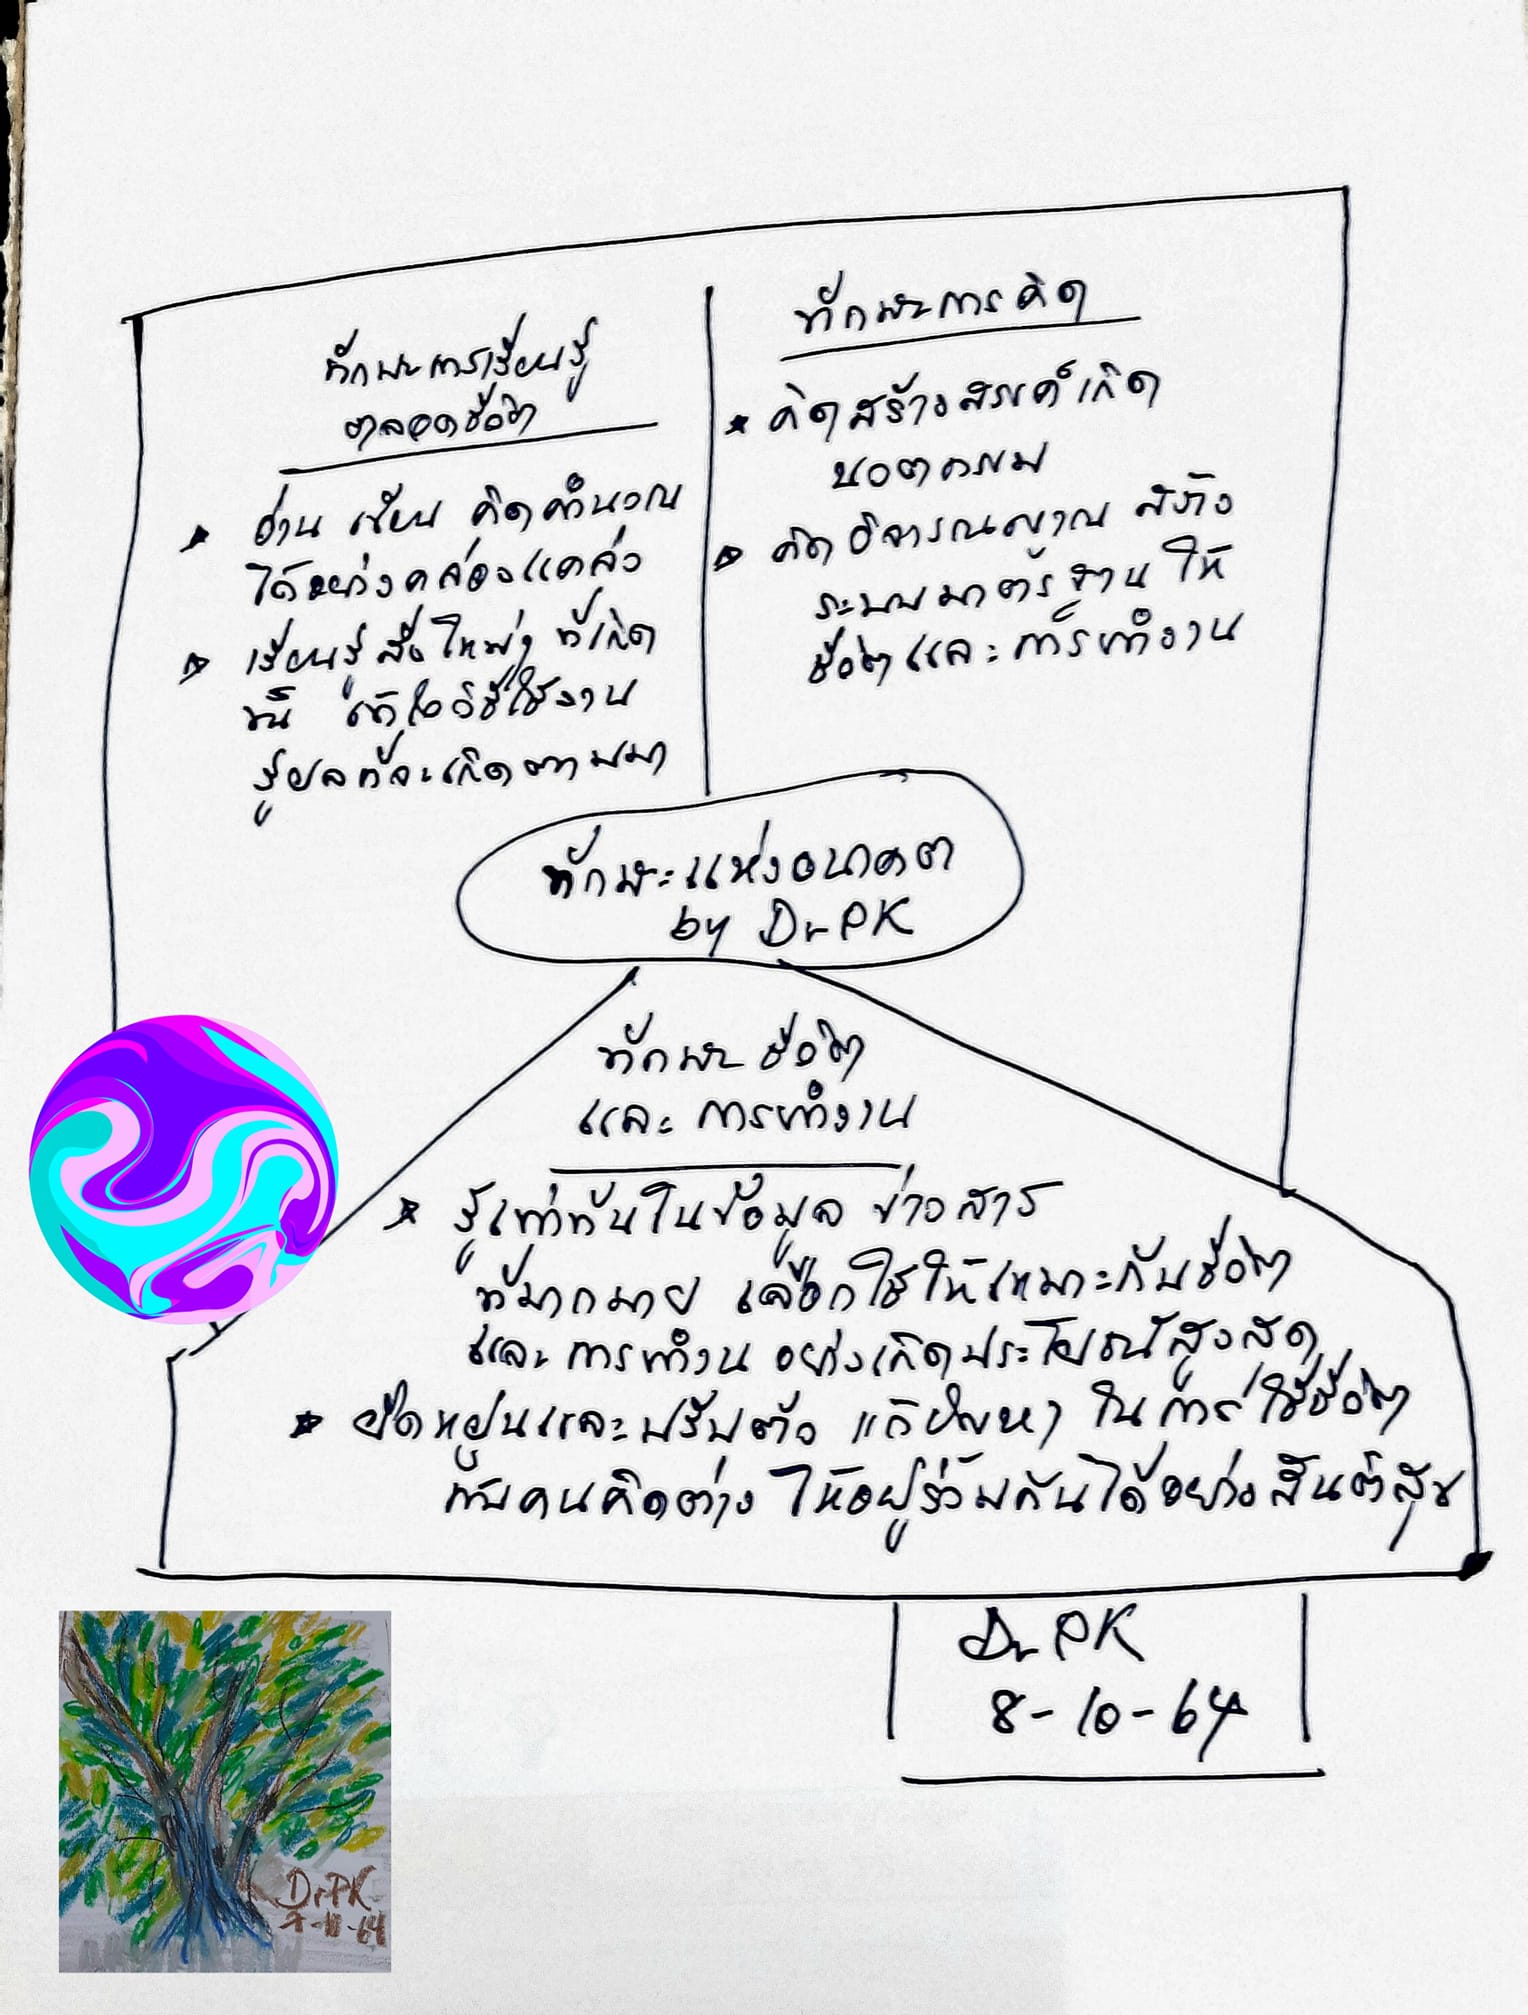 ทักษะการเรียนรู้
ตลอดชีวิต
อ่าน เขียน คิดคำนวณ
ได้อย่างคล่องแคล่ว
เรียนรู้สิ่งใหม่ๆ ที่เกิด
ขึ้น เข้าใจวิธีใช้งาน
รู้ผลที่จะเกิดตามมา
ทักษะการคิด
คิดสร้างสรรค์เกิด
นวตกรรม
คิดวิจารณญาณ สร้าง
ระบบมาตรฐาน ให้
ชีวิตและการทำงาน
ทักษะแห่งอนาคต
by Dr.PK
ทักษะชีวิต
และการทำงาน
รู้เท่าทันในข้อมูล ข่าวสาร
ที่มากมาย เลือกใช้ให้เหมาะกับชีวิต
และการทำงาน อย่างเกิดประโยชน์สูงสุด
ยืดหยุ่นและปรับตัว แก้ปัญหา ในการใช้ชีวิต
กับคนคิดต่าง ให้อยู่ร่วมกันได้อย่างสันติสุข
Dr PK
8-10-64
Dr PK